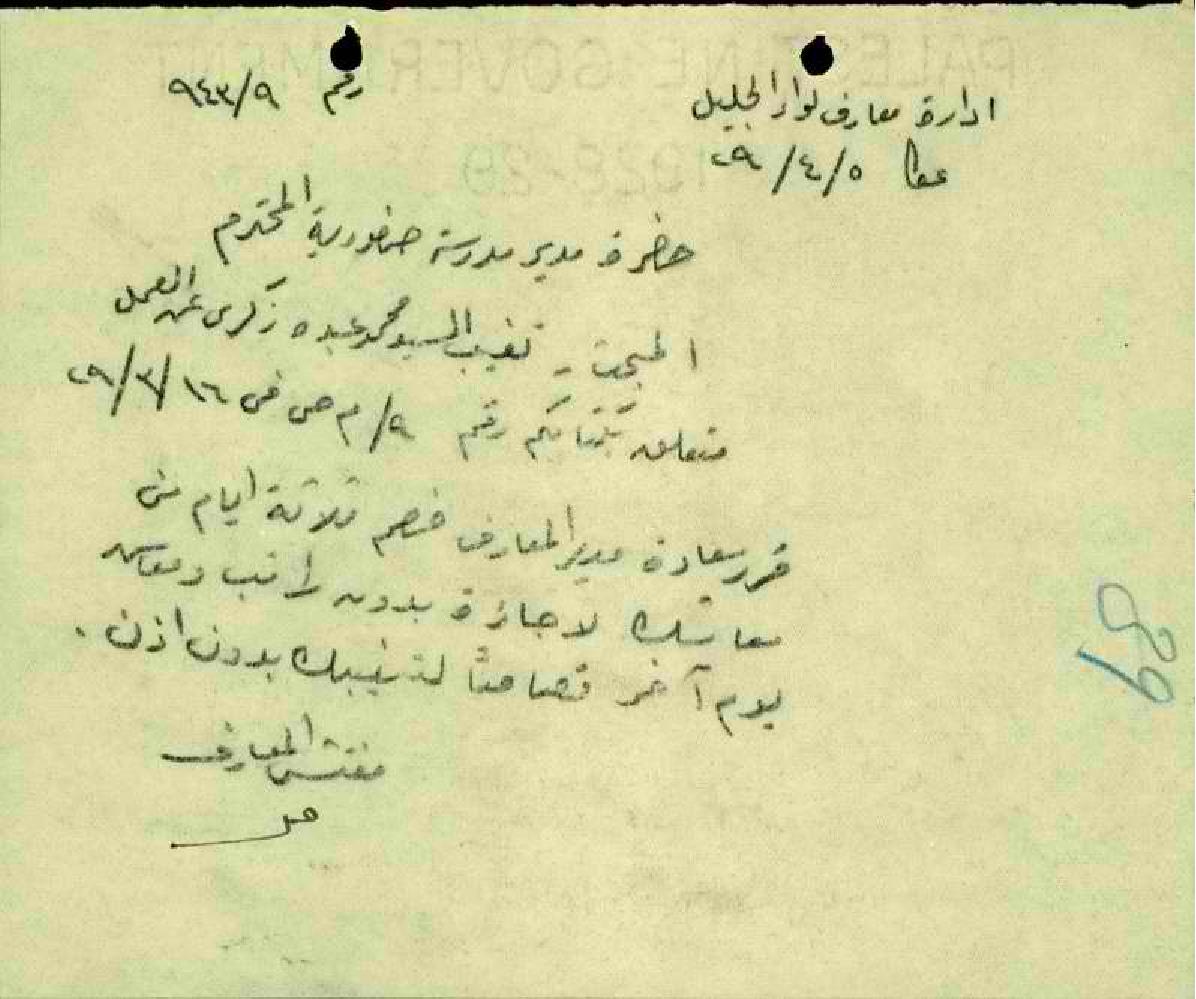 ادارة معارف لواء الجليل
رقم ٩٤٣/٩
عكا ٢٩/٤/٥
حضرة مدير مدرسة صفورية المحترم
المبحث - تغيب السيد محمد عبده زكرى عن العمل
متعلق بكتابكم رقم ٩/م ص في ٢٩/٣/١٦
قرر سعادة مدير المعارف خصم ثلاثة ايام من
معاشك لاجازة بدون راتب ومعاش
يوم آخر قصاصاً لتغيبك بدون اذن.
مفتش المعارف
PALESTINE GOVERNMENT
1928-29
89